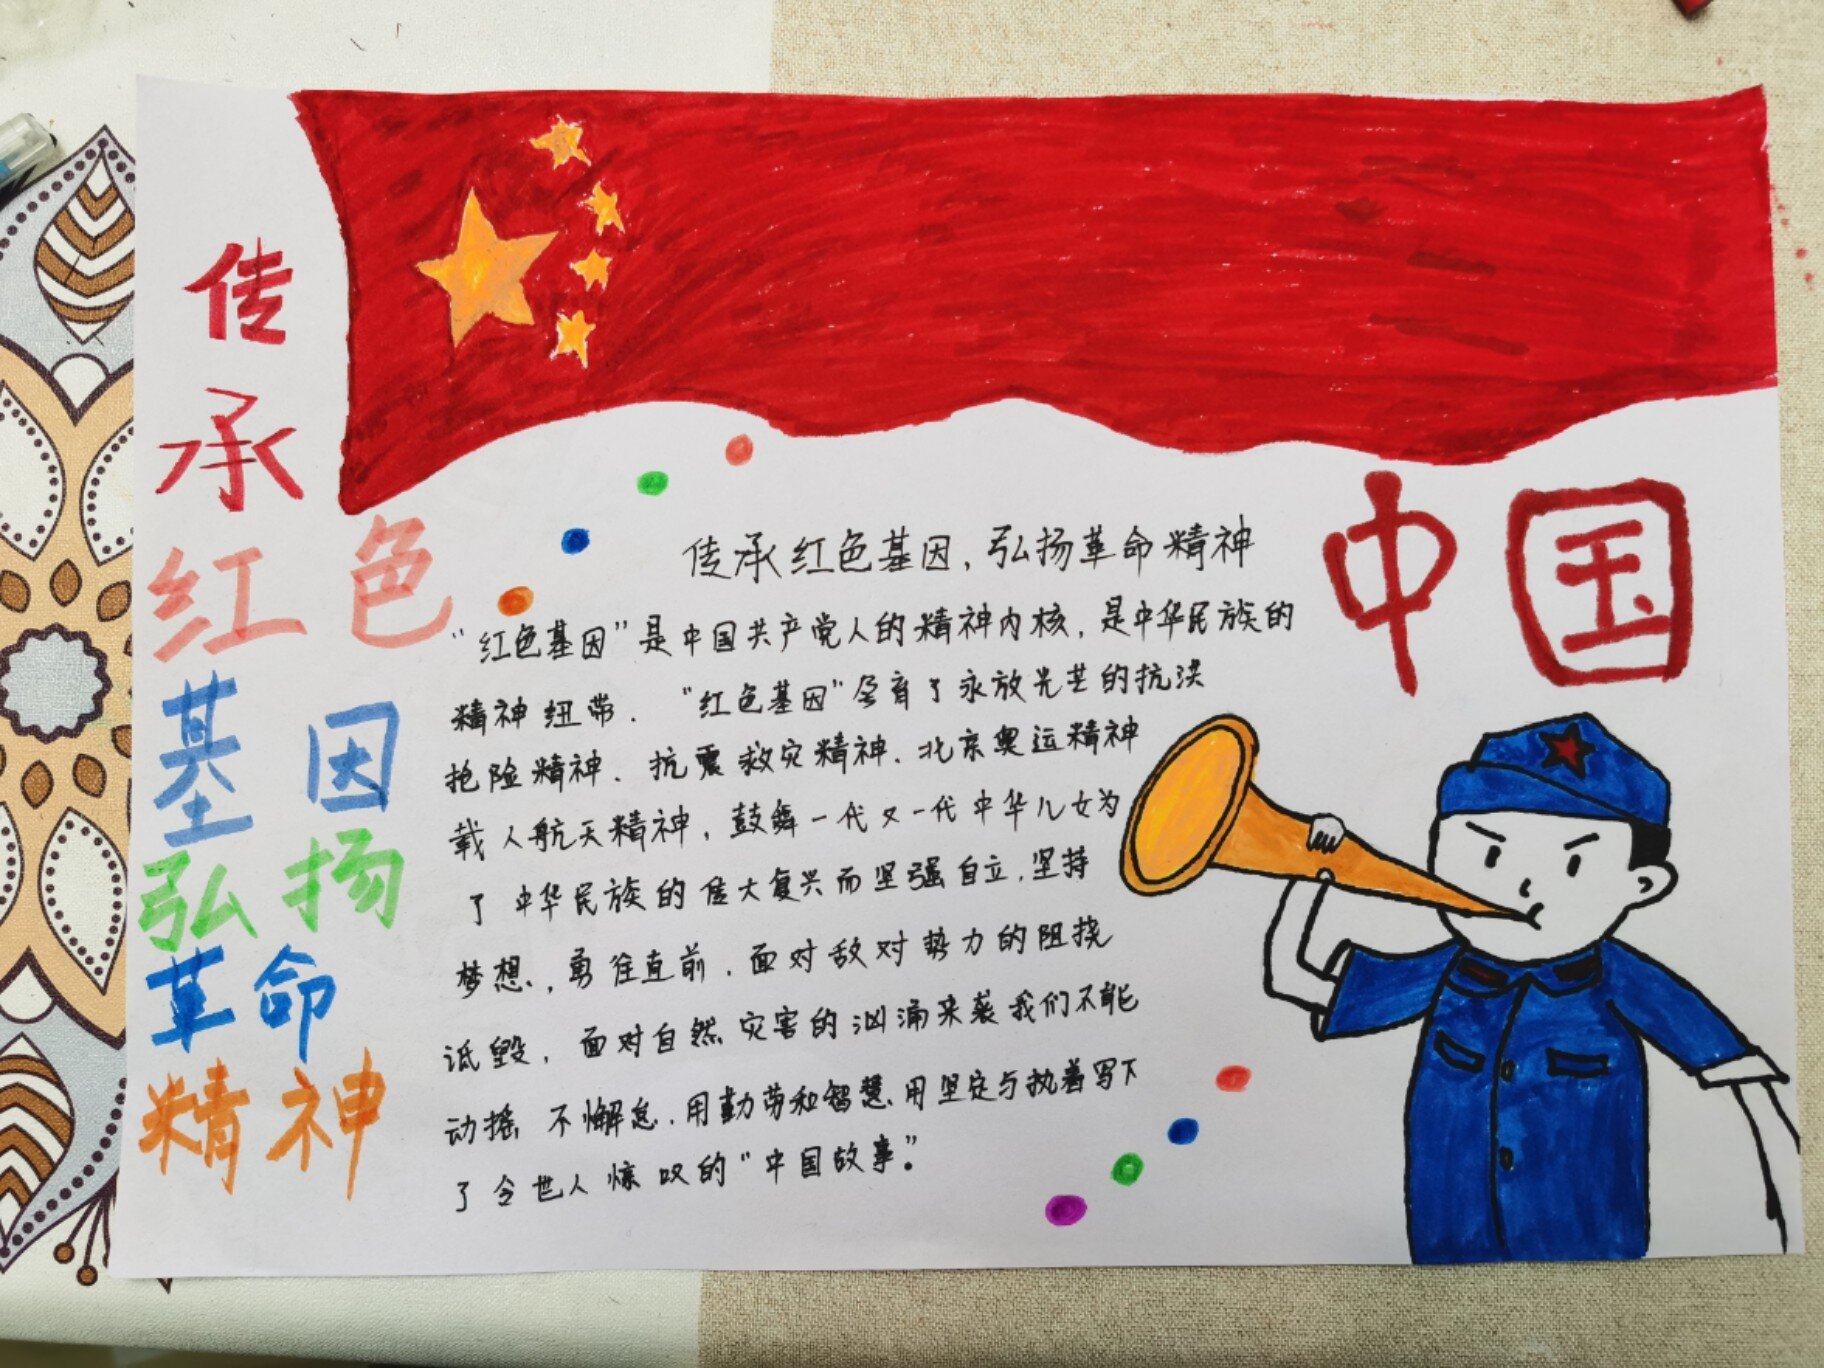 传
承
红色
基因
弘扬
革命
精神
中国
传承红色基因，弘扬革命精神
“红色基因”是中国共产党人的精神内核，是中华民族的
精神纽带．“红色基因”孕育了永放光芒的抗洪
抢险精神、抗震救灾精神、北京奥运精神
载人航天精神，鼓舞一代又一代中华儿女为
了中华民族的伟大复兴而坚强自立，坚持
梦想，勇往直前，面对敌对势力的阻挠
诋毁，面对自然灾害的汹涌来袭我们不能
动摇 不懈怠，用勤劳和智慧、用坚定与执着写下
了令世人惊叹的“中国故事”。